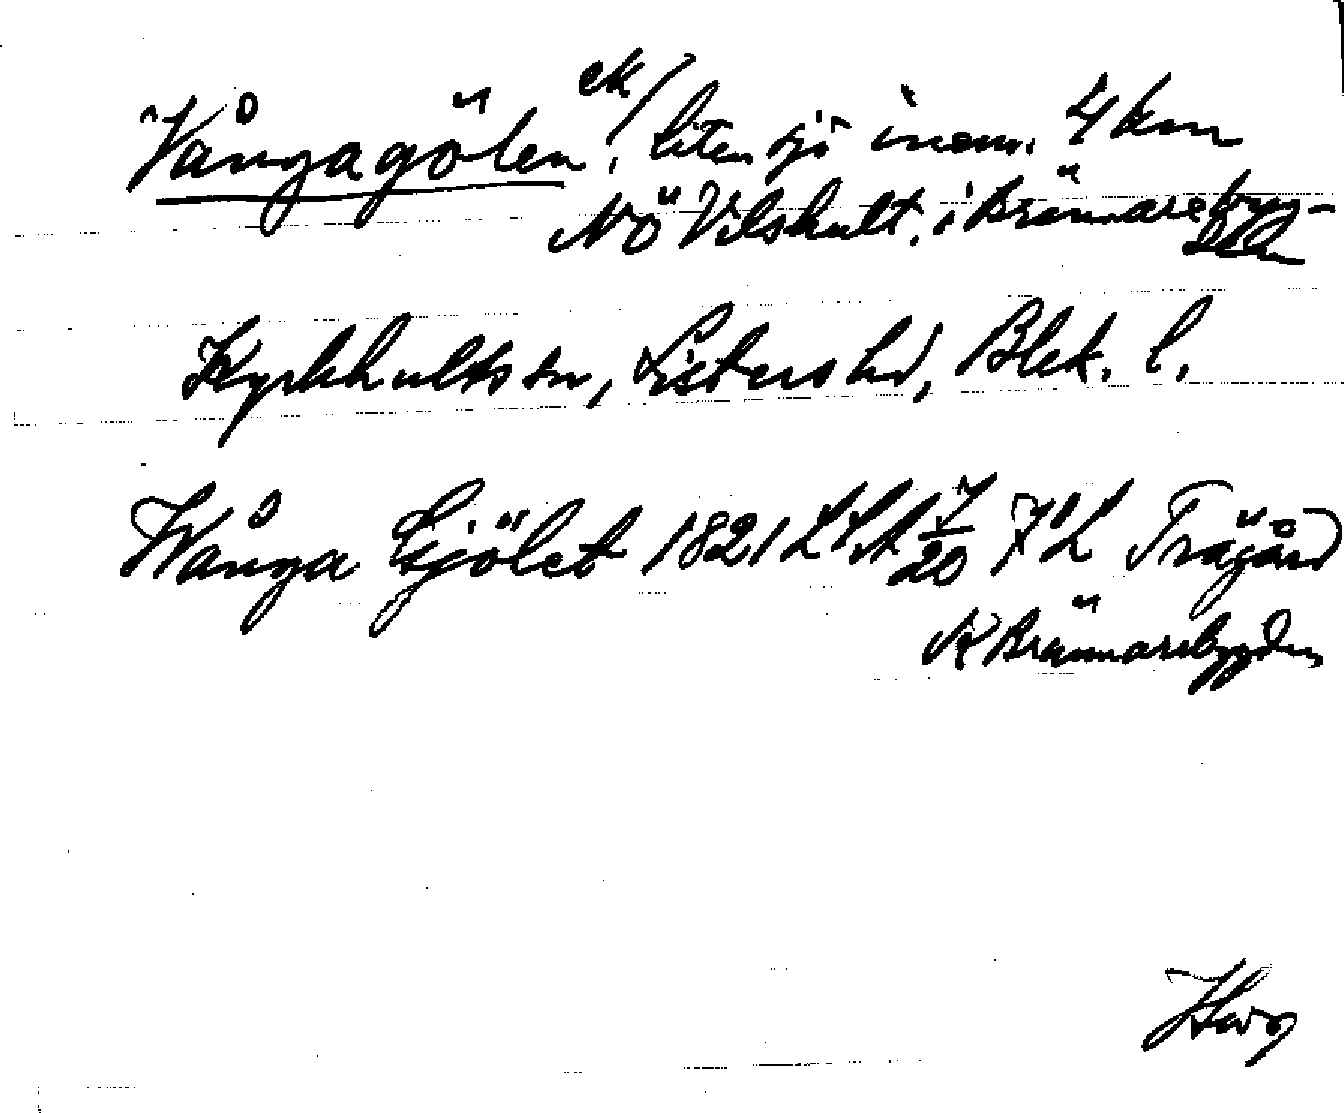 Vångagölen ek/, liten sjö inom. 4 km
NÖ Vilshult, i Brännarebyg-
den
Kyrkhults sn, Listers hd, Blek. l.
Wånga Gjölet 1821 LSA 7/20 Trägård
K Brännarebygden